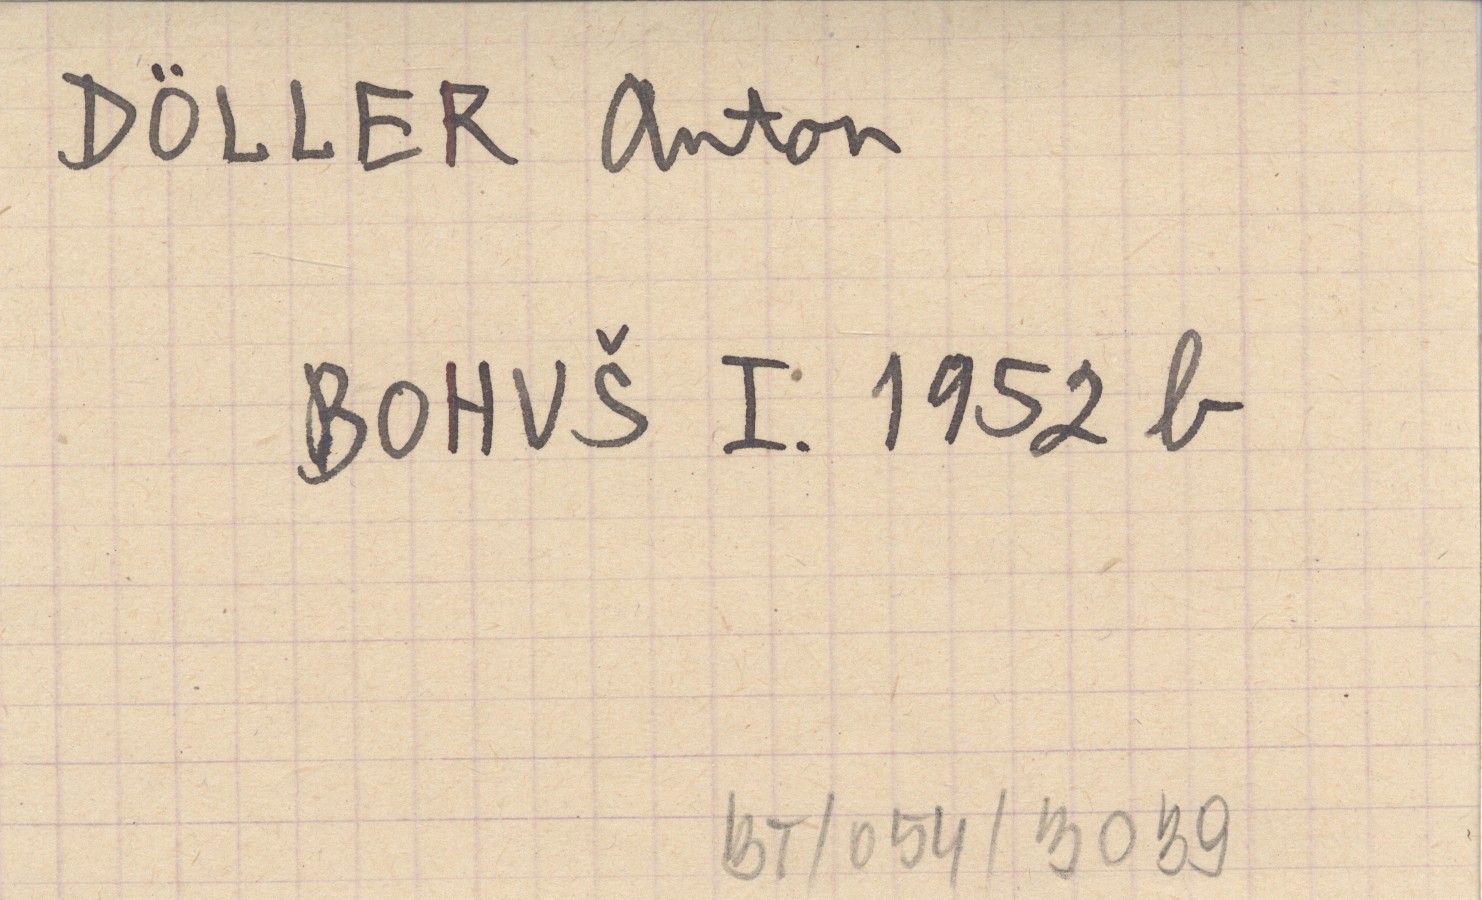 DÖLLER Anton
BOHUŠ I. 1952 b
BT/054/3039